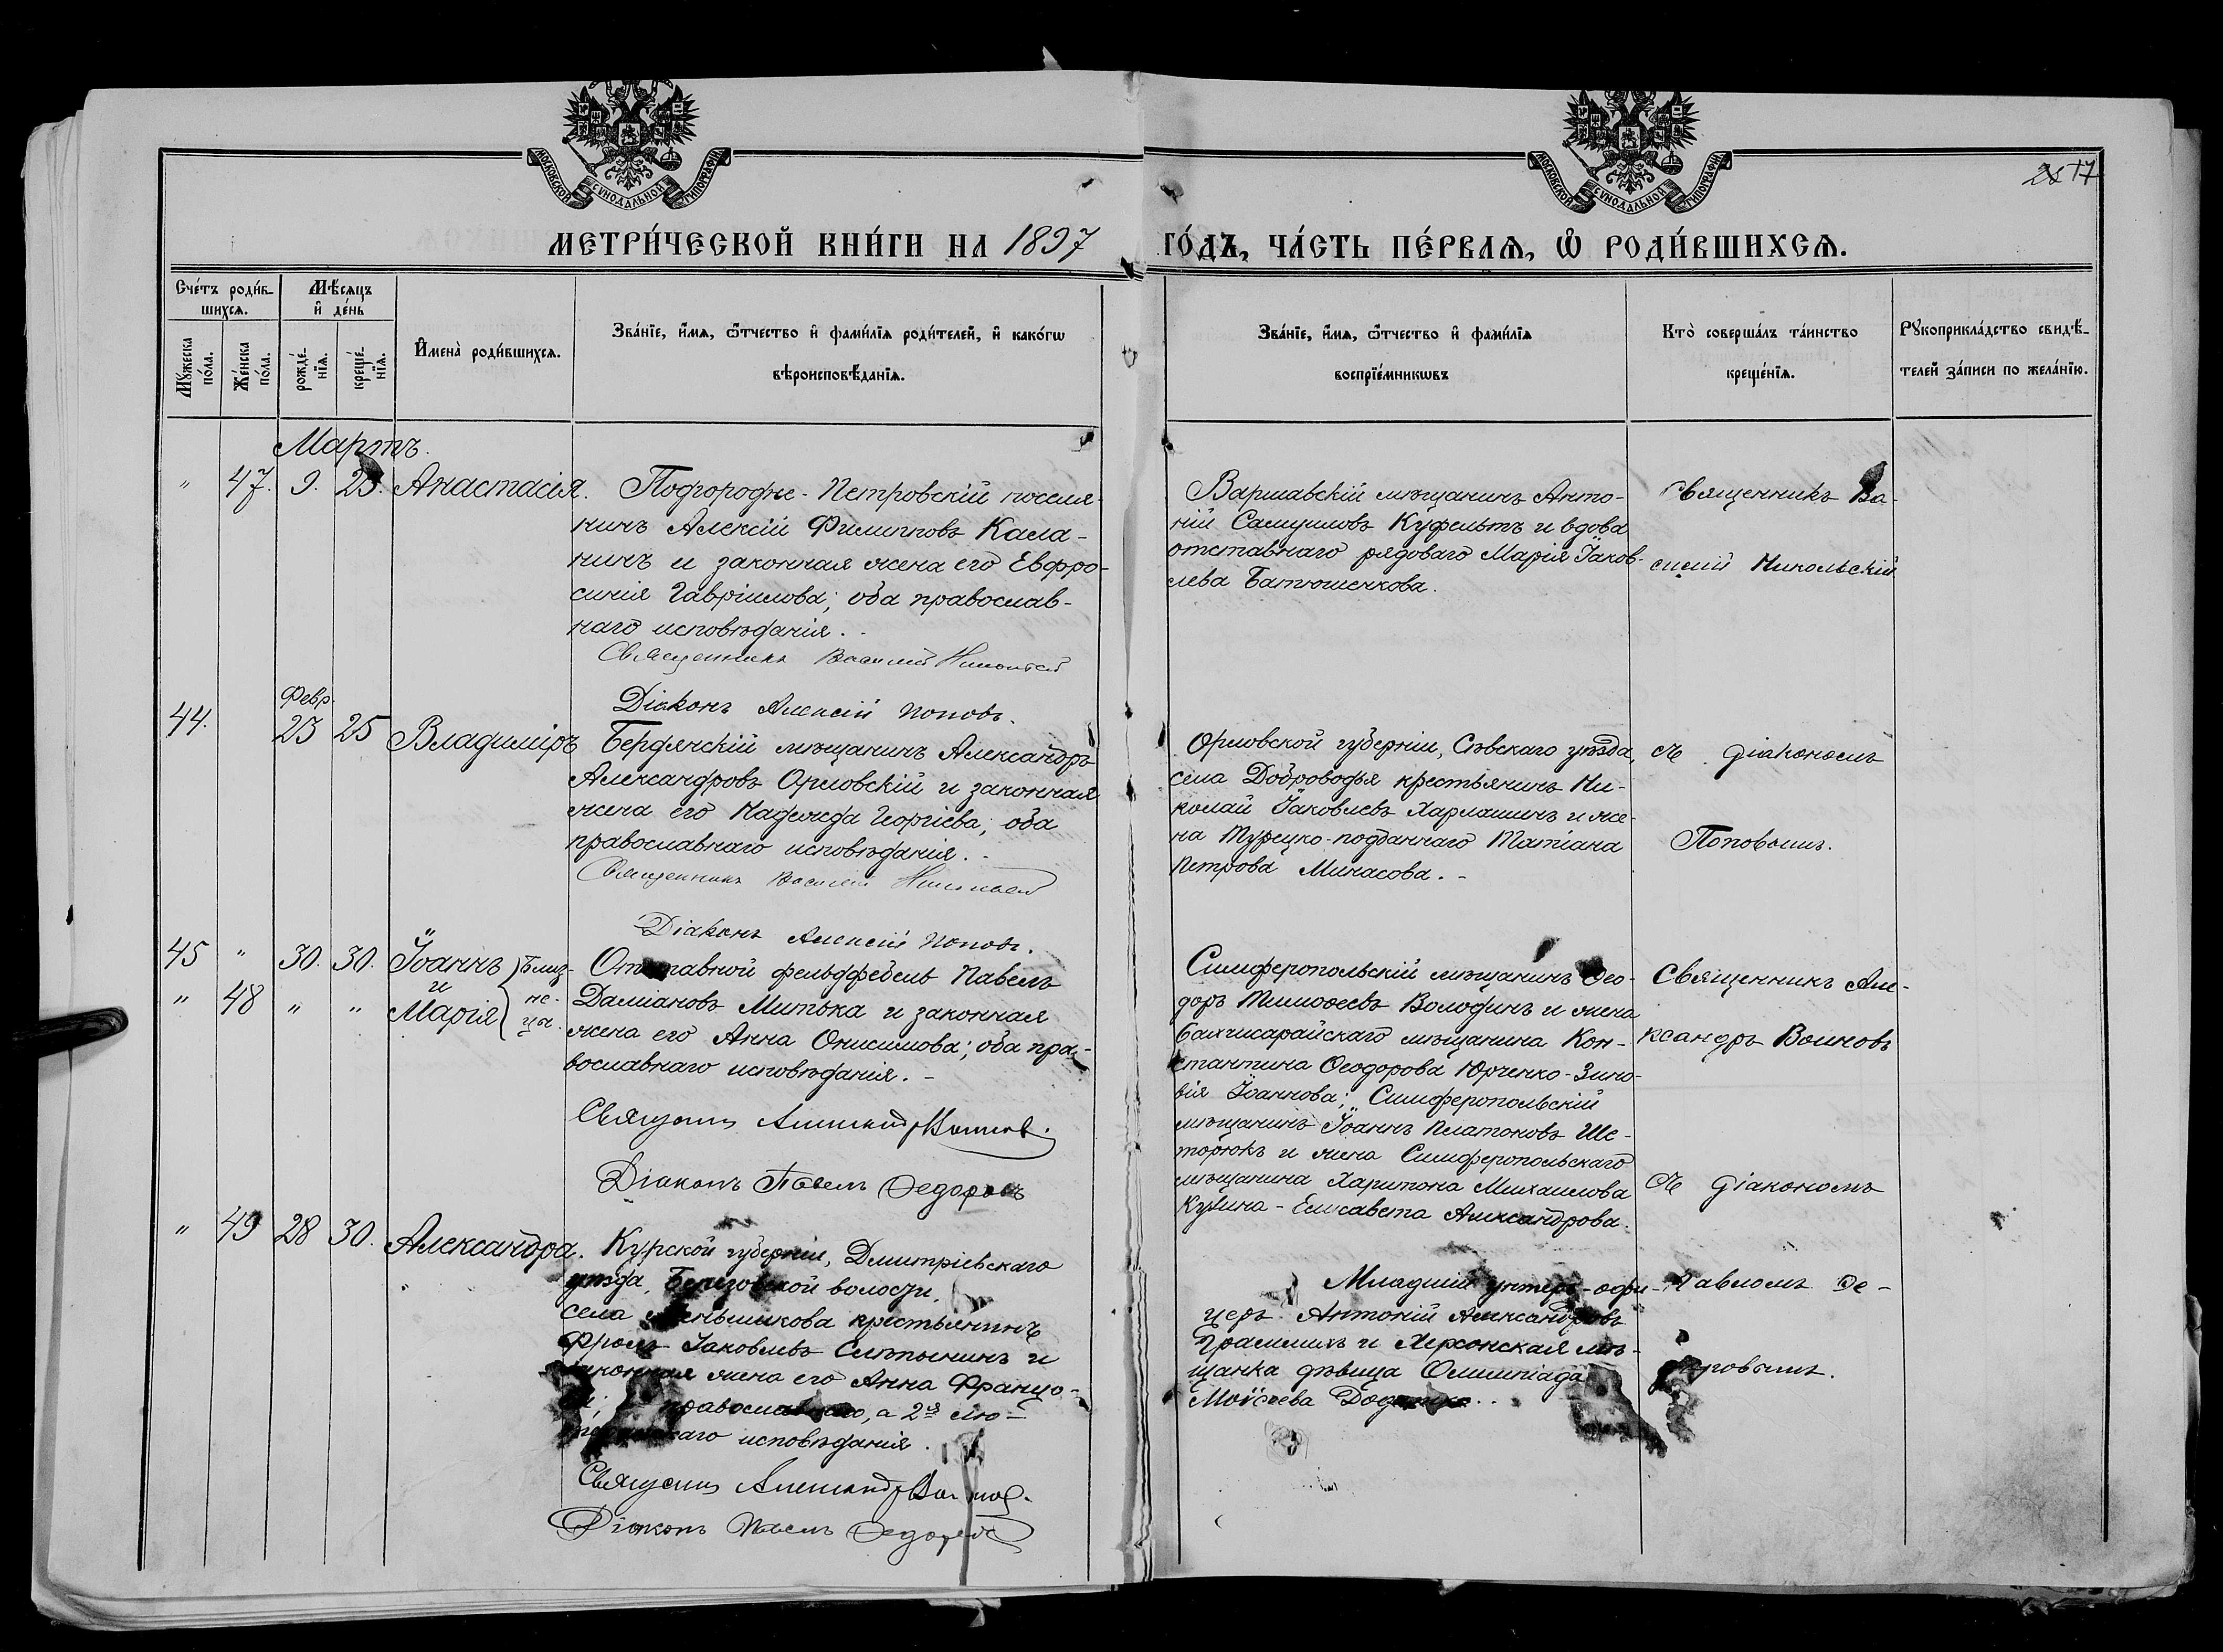 МОСКОВСКОЙ СѴНОДАЛЬНОЙ ТИПОГРАФІИ
МОСКОВСКОЙ СѴНОДАЛЬНОЙ ТИПОГРАФІИ
17
МЕТРИ́ЧЕСКОЙ КНИ́ГИ НА 1897
ГО́ДЪ, ЧА́СТЬ ПЕ́РВАѦ, Ѡ҆ РОДИ́ВШИХСѦ.
Сче́тъ роди́в-
шихсѧ.
Мꙋ́жеска по́ла.
Же́нска по́ла.
Мѣ́сѧцъ
и҆ де́нь
рожде́-
нїѧ.
креще́-
нїѧ.
И҆мена̀ роди́вшихсѧ.
Зва́нїе, и҆́мѧ, ѻ҆́тчество и҆ фами́лїѧ роди́телей, и҆ како́гѡ
вѣроисповѣ́данїѧ.
Зва́нїе, и҆́мѧ, ѻ҆́тчество и҆ фами́лїѧ
воспрїе́мникѡвъ
Кто̀ соверша́лъ та́инство
креще́нїѧ.
Рꙋкоприкла́дство свидѣ́-
телей за́писи по жела́нїю.
Мартъ.
" 47. 9. 23. Анастасія.
Подгородне-Петровскій поселя-
нинъ Алексій Филипповъ Кала-
нинъ и законная жена его Евфро-
синія Гавріилова; оба православ-
наго исповѣданія.
Священникъ Василій Никольскій
Діаконъ Алексій Поповъ.
Варшавскій мѣщанинъ Анто-
ній Самуиловъ Куфельтъ и вдова
отставнаго рядоваго Марія Іаков-
лева Батюшенкова.
Священникъ Ва-
силій Никольскій
Февр.
44. 23 25 Владиміръ
Бердянскій мѣщанинъ Александръ
Александровъ Орловскій и законная
жена его Надежда Георгіева; оба
православнаго исповѣданія.
Священникъ Василій Никольскій
Діаконъ Алексій Поповъ.
Орловской губерніи, Сѣвскаго уѣзда,
села Доброводья крестьянинъ Ни-
колай Іаковлевъ Харлашинъ и же-
на Турецко-подданнаго Татіана
Петрова Минасова.
съ діакономъ
Поповымъ.
45 " 30. 30. Іоаннъ
и
" 48 " " Марія
Близ-
не-
цы.
Отставной фельдфебель Павелъ
Даміановъ Митька и законная
жена его Анна Онисимова; оба пра-
вославнаго исповѣданія.
Священ Александръ Воиновъ
Діаконъ Павелъ Федоровъ
Симферопольскій мѣщанинъ Ѳео-
доръ Тимоѳеевъ Володинъ и жена
бахчисарайскаго мѣщанина Кон-
стантина Ѳеодорова Юрченко-Зино-
вія Іоаннова; Симферопольскій
мѣщанинъ Іоаннъ Платоновъ Ше-
торюкъ и жена Симферопольскаго
мѣщанина Харитона Михаилова
Кулина-Елисавета Александрова.
Священникъ Але-
ксандръ Воиновъ
съ діакономъ
" 49 28 30. Александра.
Курской губерніи, Дмитріевскаго
уѣзда, Березовской волости,
села крестьянинъ
Фролъ Іаковлевъ Слѣпынинъ и
законная жена его Анна Францо-
православнаго, а 2я лю-
исповѣданія.
Священ Александръ Воиновъ
Діаконъ Павелъ Федоровъ
Младшій унтеръ-офи-
церъ Антоній Александровъ
и Херсонская мѣ-
щанка дѣвица Олимпіада
Моѵсеева
Павломъ Ѳе-
доровымъ.